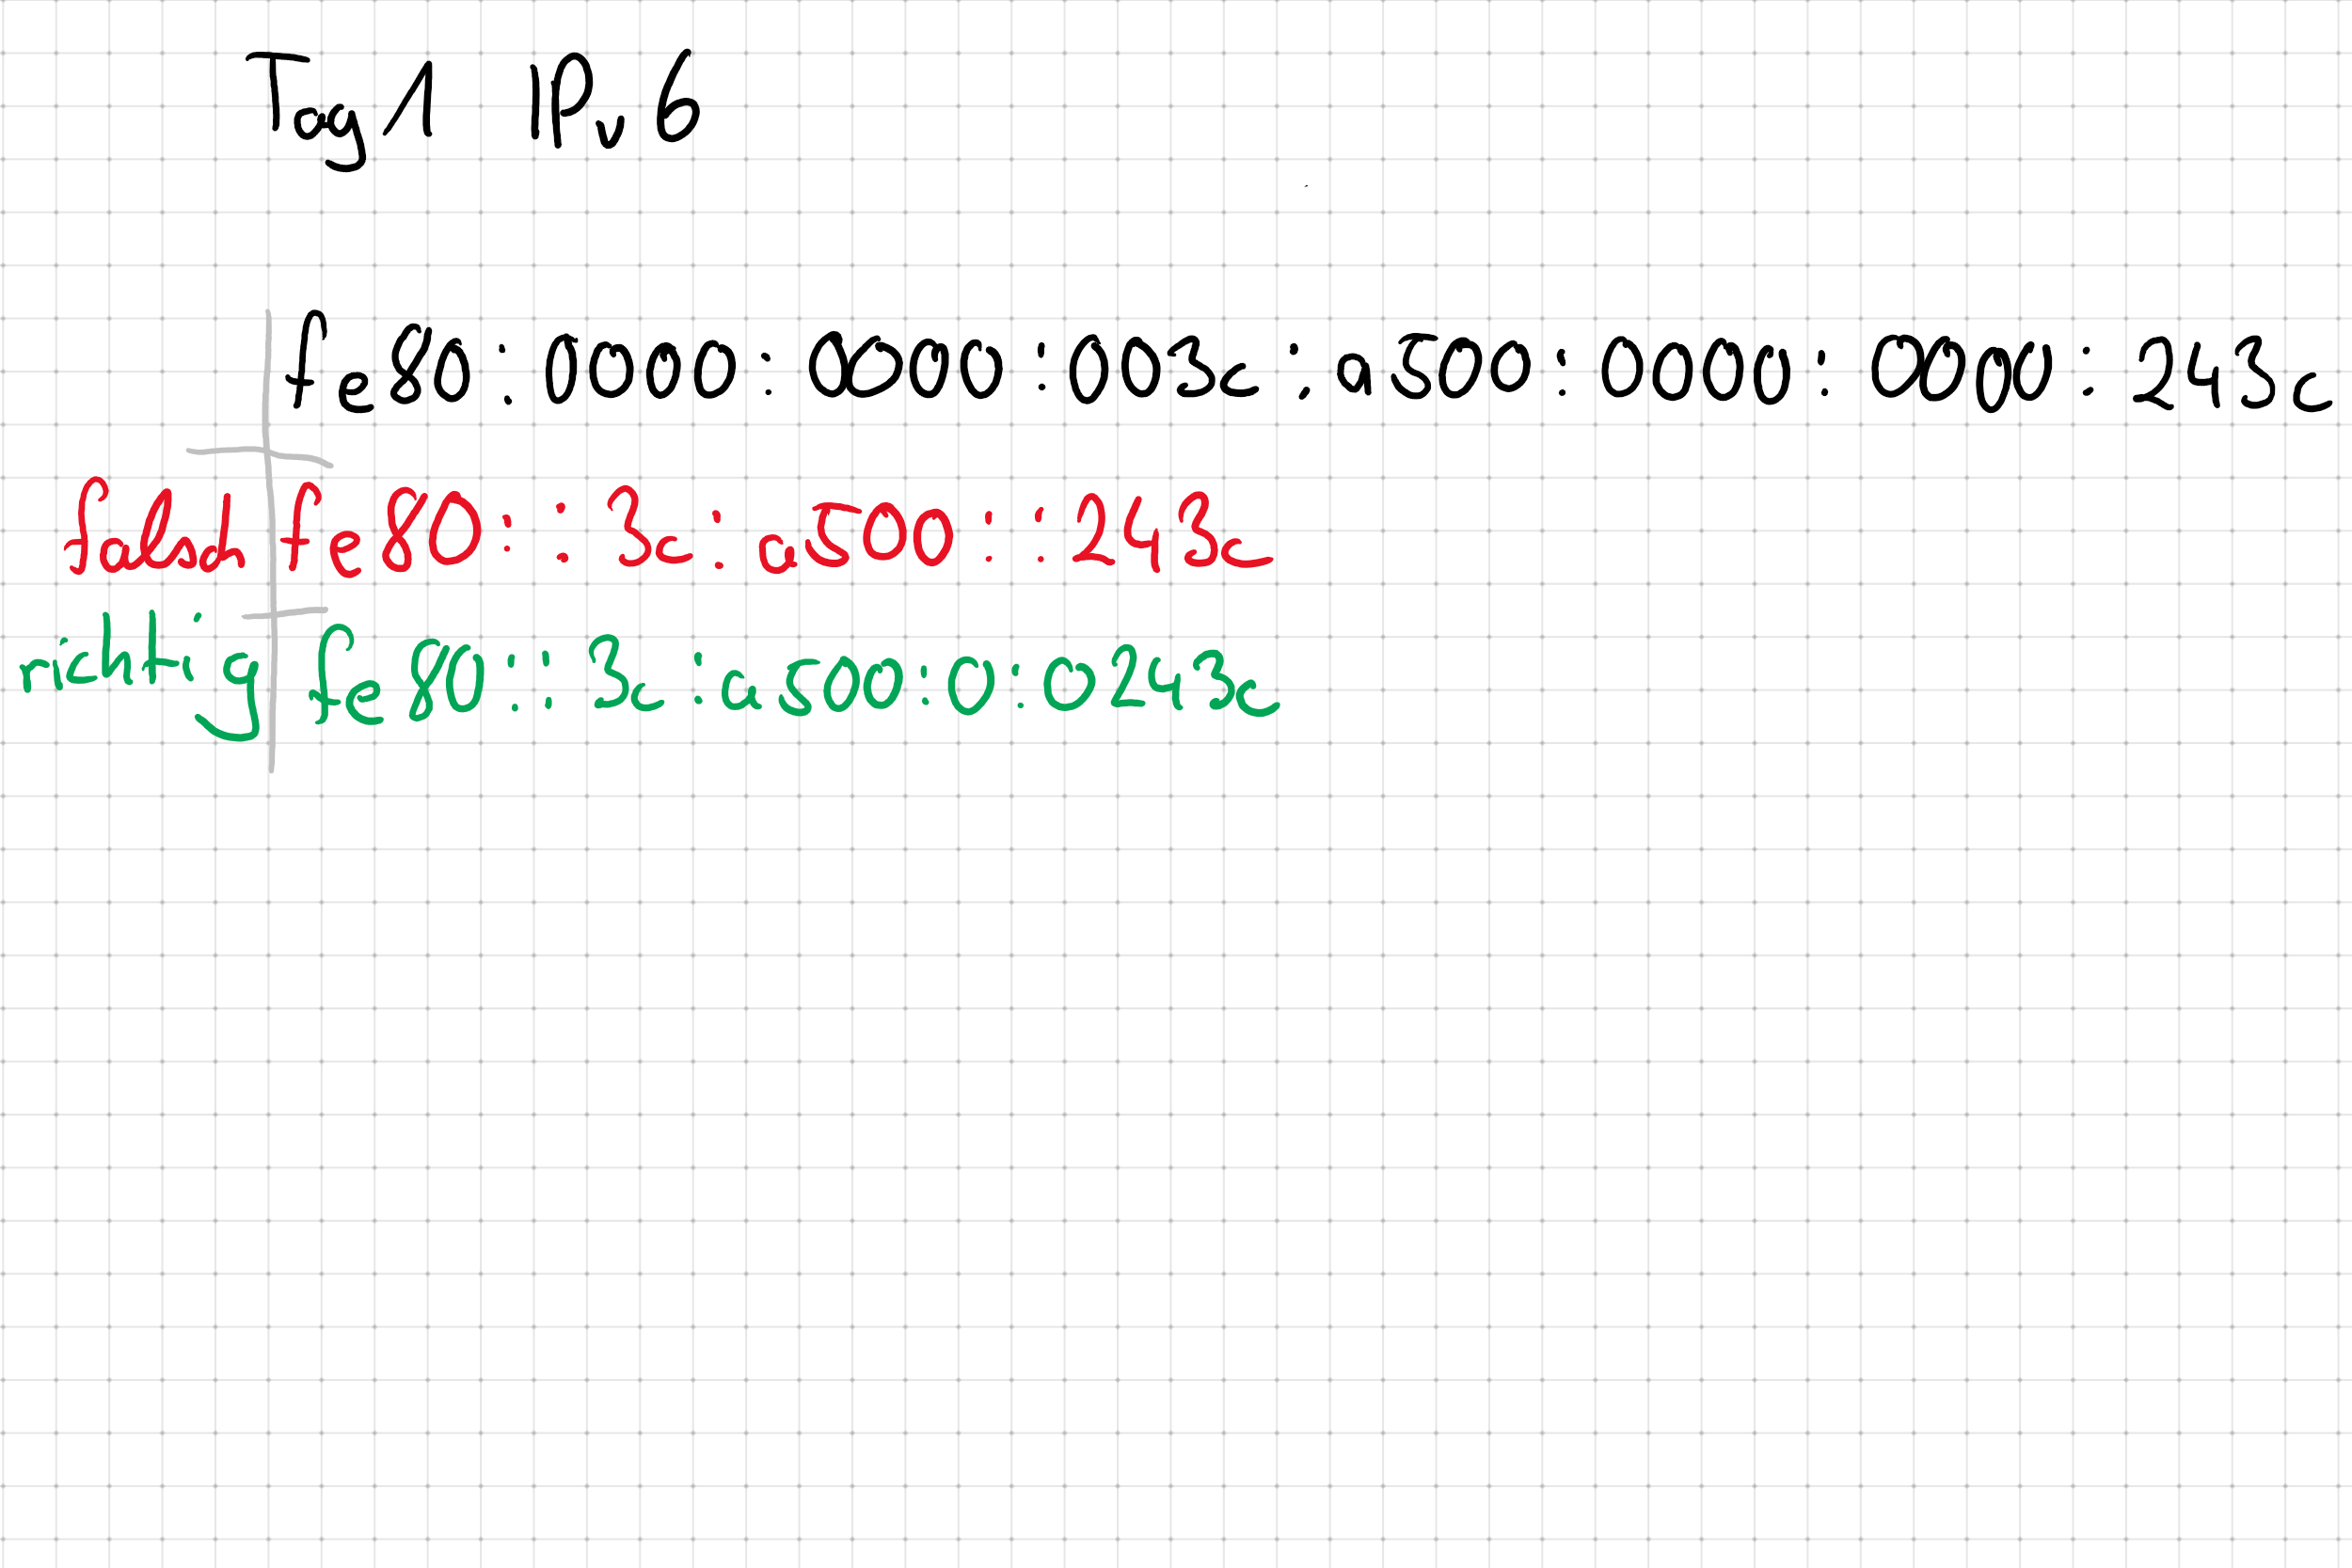 Tag 1 IPv6
fe80:0000:0000:003c:a500:0000:0000:243c
falsch fe80::3c:a500::243c
richtig fe80::3c:a500:0:0243c